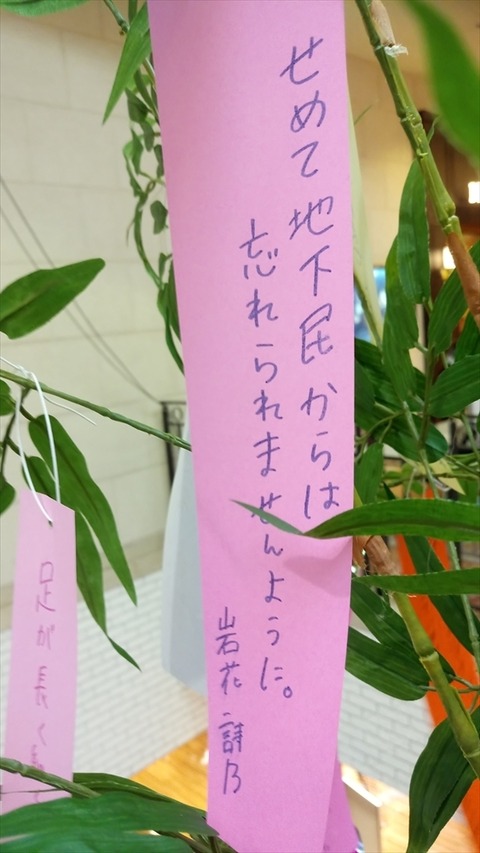 せめて地下民からは
忘れられませんように。
岩花詩乃
足が長く